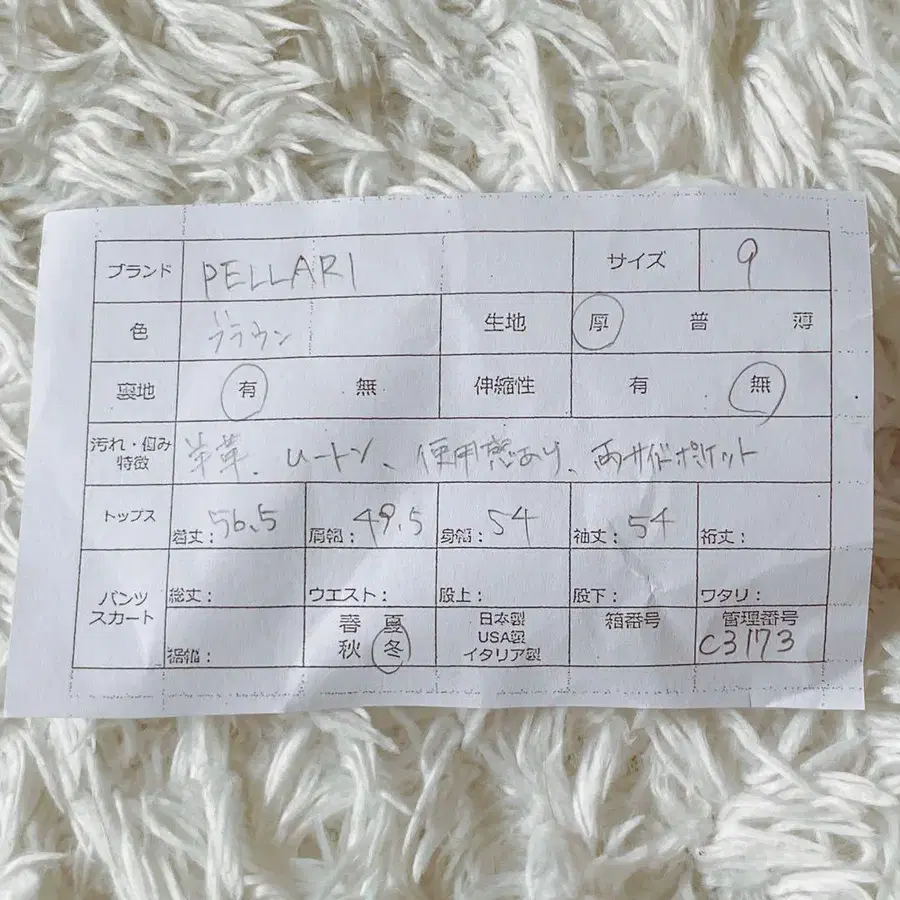 ブランド PELLARI サイズ 9
色 ブラウン 生地 厚 普 薄
裏地 有 無 伸縮性 有 無
汚れ・傷み
特徴 羊革、ムートン、使用感あり、両サイドポケット
トップス 着丈：56.5 肩幅：49.5 身幅：54 袖丈：54 裄丈：
パンツ
スカート 総丈： ウエスト： 股上： 股下： ワタリ：
裾幅： 春 夏 秋 冬 日本製 USA製 イタリア製 箱番号 管理番号 C3173